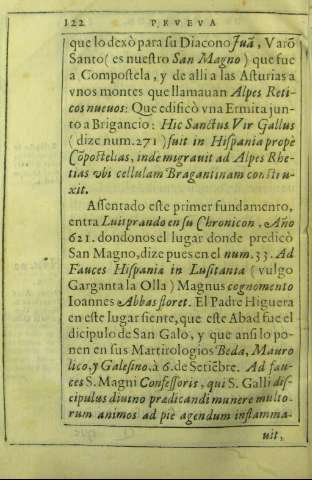 122 PRVEVA
que lo dexò para su Diacono Juã, Varõ
Santo (es nuestro San Magno) que fue
a Compostela, y de alli a las Asturias a
vnos montes que llamauan Alpes Reti-
cos nueuos: Que edificò vna Ermita jun-
to a Brigancio: Hic Sanctus Vir Gallus
(dize num. 271) fuit in Hispania propè
Cõpostellas, inde migrauit ad Alpes Rhe-
tias vbi cellulam Bragantinam constru-
xit.
Assentado este primer fundamento,
entra Luitprando en su Chronicon, Año
621. dondonos el lugar donde predicò
San Magno, dize pues en el num. 33. Ad
Fauces Hispania in Lusitania (vulgo
Garganta la Olla) Magnus cognomento
Ioannes Abbas floret. El Padre Higuera
en este lugar siente, que este Abad fue el
dicipulo de San Galo, y que ansi lo po-
nen en sus Martirologios Beda, Mauro
lico, y Galesino, à 6. de Setiẽbre. Ad fau-
ces S. Magni Confessoris, qui S. Galli dis-
cipulus diuino prædicandi munere multo-
rum animos ad piè agendum inflamma-
uit,